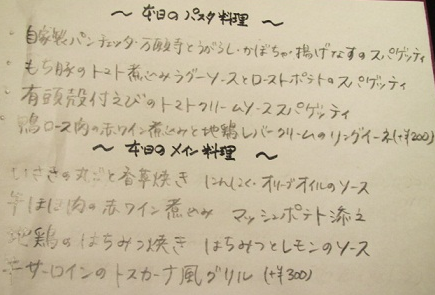 ～ 本日のパスタ料理 ～
・自家製パンチェッタ・万願寺とうがらし・かぼちゃ・揚げなすのスパゲッティ
・もち豚のトマト煮込みラグーソースとローストポテトのスパゲッティ
・有頭殻付えびのトマトクリームソーススパゲッティ
・鴨ロース肉の赤ワイン煮込みと地鶏レバークリームのリングイーネ(+¥200)
～ 本日のメイン料理 ～
いさきの丸ごと香草焼き にんにく・オリーブオイルのソース
牛ほほ肉の赤ワイン煮込み マッシュポテト添え
地鶏のはちみつ焼き はちみつとレモンのソース
牛サーロインのトスカーナ風グリル (+¥300)